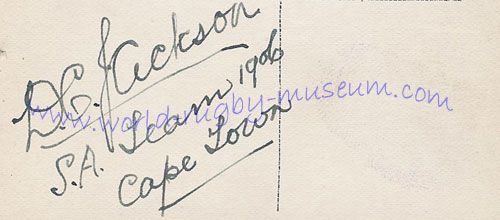 D.C. Jackson
S.A. Team 1906
Cape Town
www.world-rugby-museum.com